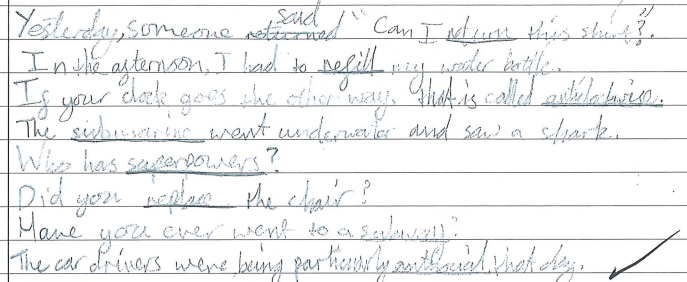 Yesterday, someone returned said "Can I return this shirt?".
In the afternoon, I had to refill my water bottle.
If your clock goes the other way, that is called anticlockwise.
The submarine went underwater and saw a shark.
Who has superpowers?
Did you replace the chair?
Have you ever went to a subway?
The car drivers were being particuarly antisocial that day.